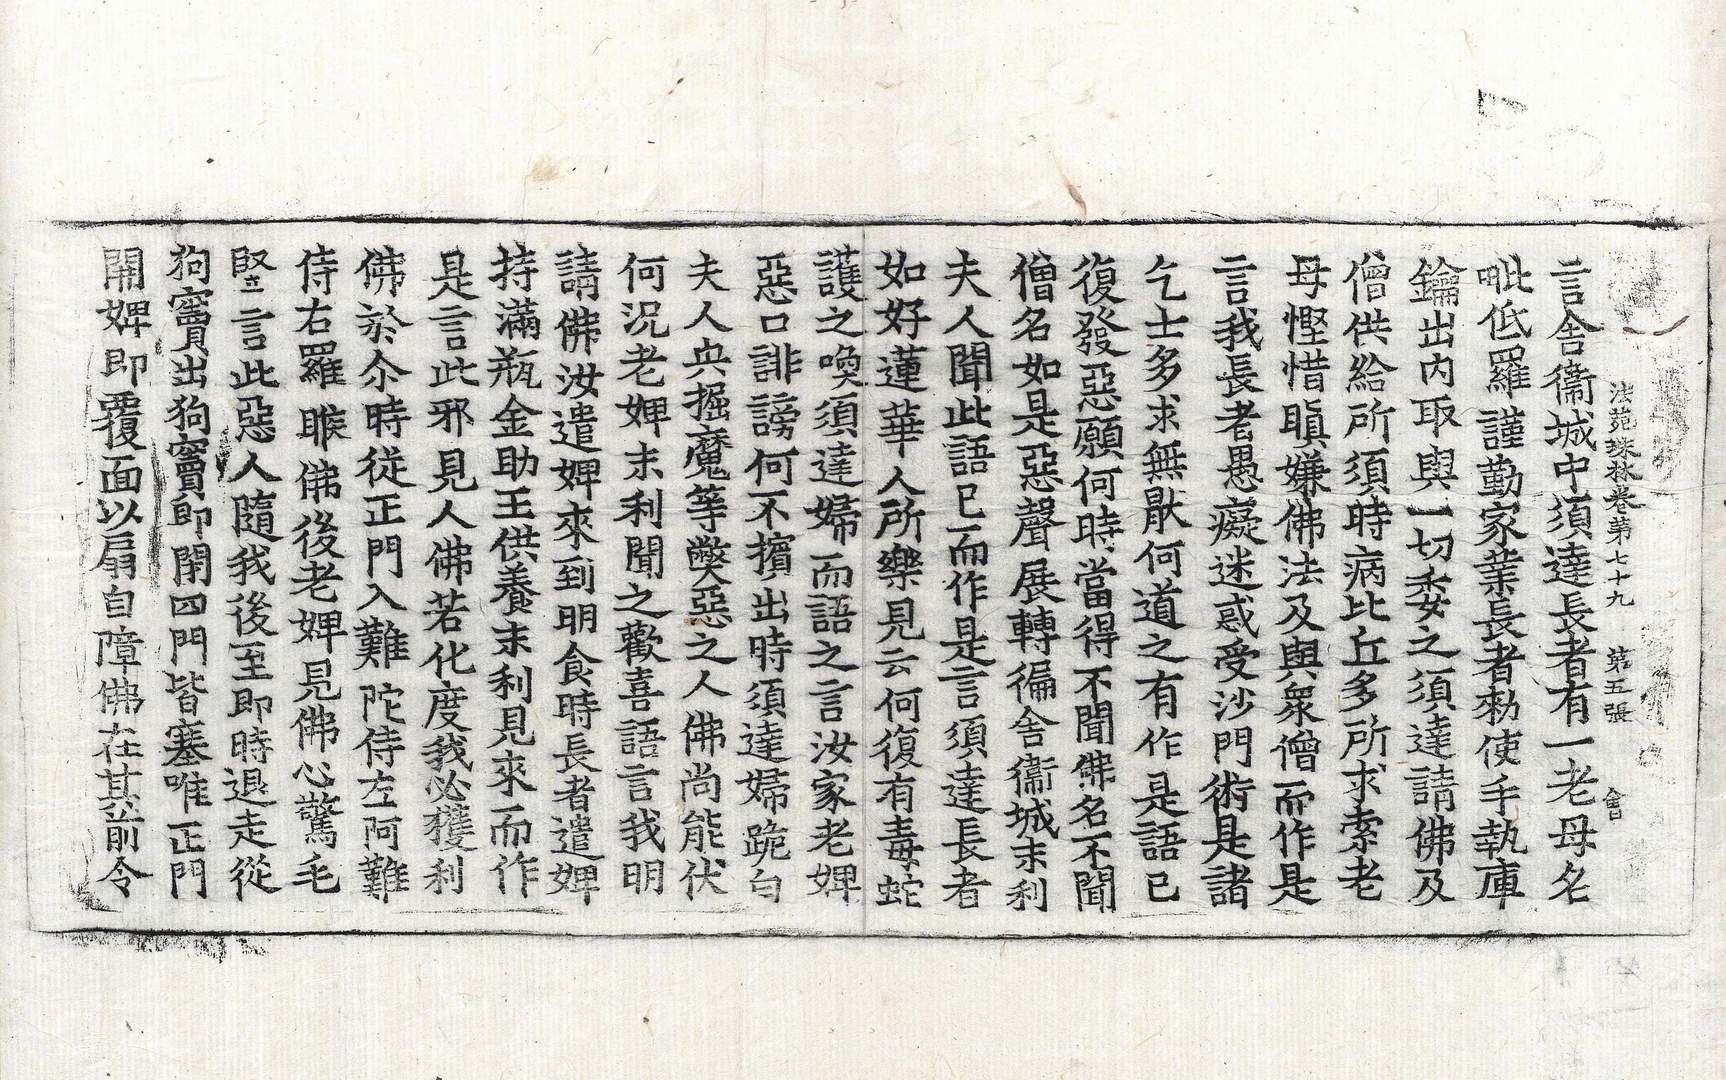 法苑珠林卷第七十九 第五張 會
言舍衞城中須達長者有一老母名
毗低羅謹勤家業長者勑使手執庫
鑰出內取與一切委之須達請佛及
僧供給所須時病比丘多所求索老
母慳惜瞋嫌佛法及與衆僧而作是
言我長者愚癡迷惑受沙門術是諸
乞士多求無猒何道之有作是語已
復發惡願何時當得不聞佛名不聞
僧名如是惡聲展轉徧舍衞城末利
夫人聞此語已而作是言須達長者
如好蓮華人所樂見云何復有毒蛇
護之喚須達婦而語之言汝家老婢
惡口誹謗何不擯出時須達婦跪白
夫人央掘魔等弊惡之人佛尚能伏
何況老婢末利聞之歡喜語言我明
請佛汝遣婢來到明食時長者遣婢
持滿瓶金助王供養末利見來而作
是言此邪見人佛若化度我必獲利
佛於尒時從正門入難陀侍左阿難
侍右羅睺佛後老婢見佛心驚毛
竪言此惡人隨我後至即時退走從
狗竇出狗竇即閉四門皆塞唯正門
開婢即覆面以扇自障佛在其前令